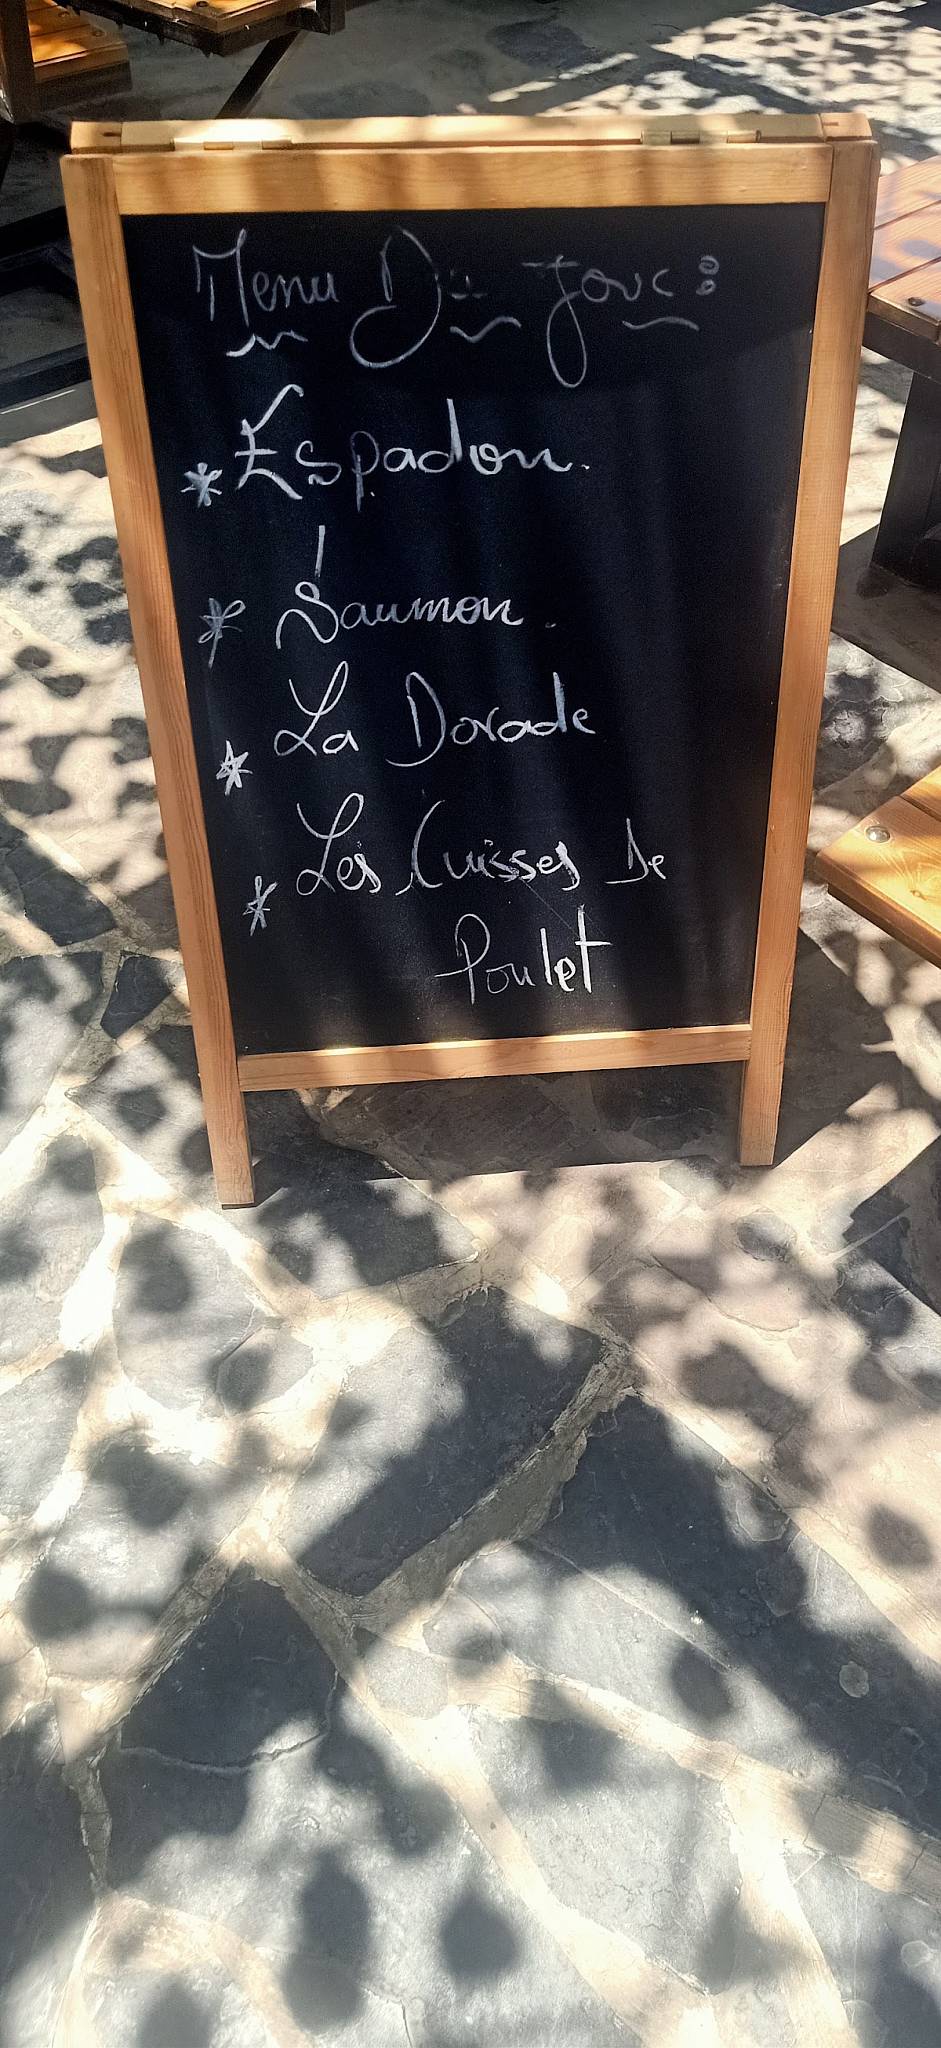 Menu Du Jour :
* Espadon.
* Saumon.
* La Dorade
* Les Cuisses De
Poulet